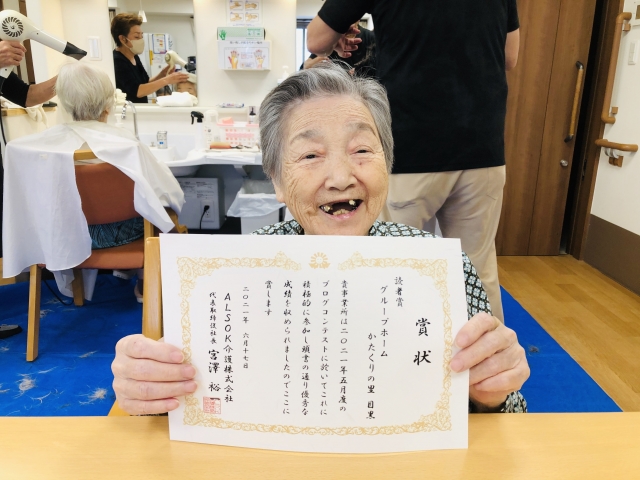 賞状
読者賞
グループホーム
かたくりの里 目黒
貴事業所は二〇二一年五月度の
ブログコンテストに於いてこれに
積極的に参加し頭書の通り優秀な
成績を収められましたのでここに
賞します
二〇二一年 六月十七日
ALSOK介護株式会社
代表取締役社長 宮澤 裕一